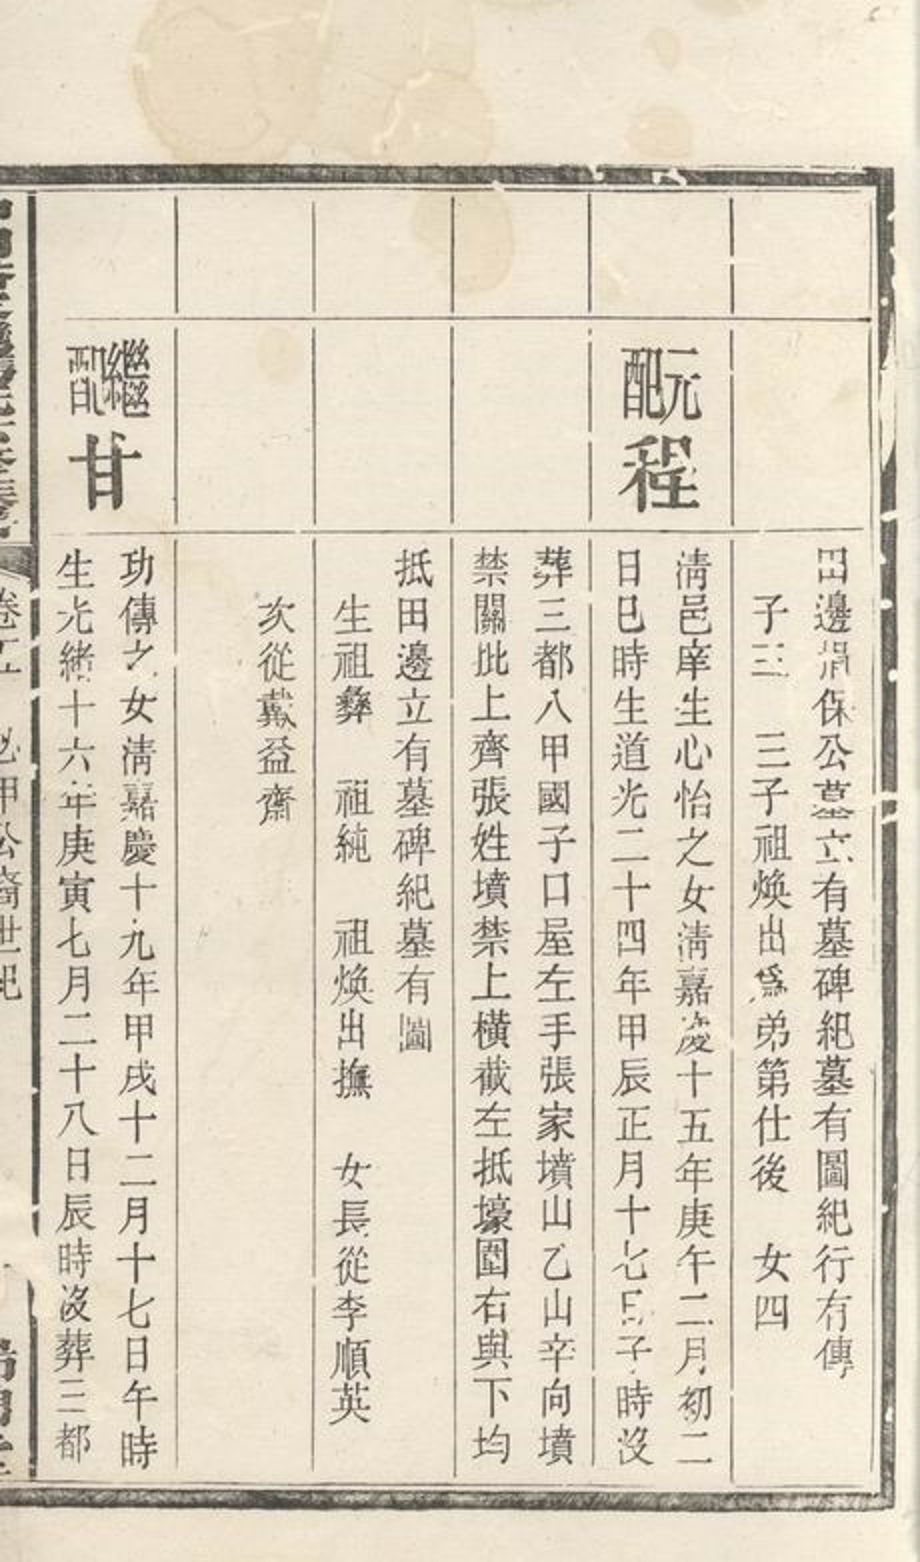 田邊涓保公墓立有墓碑紀墓有圖紀行有傳
子三　三子祖煥出爲弟第仕後　女四
元配
程
淸邑庠生心怡之女淸嘉慶十五年庚午二月初二
日巳時生道光二十四年甲辰正月十七日子時沒
葬三都八甲國子口屋左手張家墳山乙山辛向墳
禁關批上齊張姓墳禁上橫截左抵壕圍右與下均
抵田邊立有墓碑紀墓有圖
生祖彝　祖純　祖煥出撫　女長從李順英
次從戴益齋
繼配
甘
功傳之女淸嘉慶十九年甲戌十二月十七日午時
生光緖十六年庚寅七月二十八日辰時沒葬三都
公裔世紀